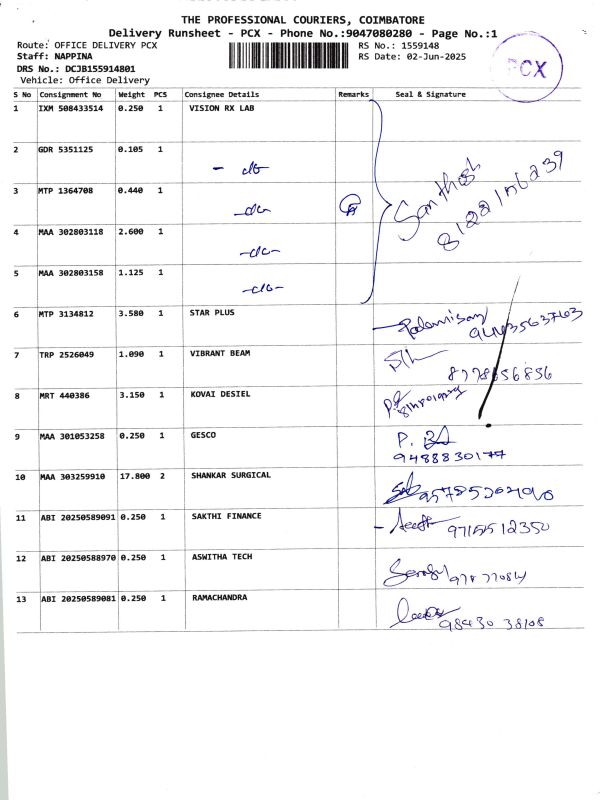 THE PROFESSIONAL COURIERS, COIMBATORE
Delivery Runsheet - PCX - Phone No.:9047080280 - Page No.:1
Route: OFFICE DELIVERY PCX
Staff: NAPPINA
DRS No.: DCJB155914801
Vehicle: Office Delivery
RS No.: 1559148
RS Date: 02-Jun-2025
PCX
S No Consignment No Weight PCS Consignee Details Remarks Seal & Signature
1 IXM 508433514 0.250 1 VISION RX LAB
2 GDR 5351125 0.105 1 - do -
3 MTP 1364708 0.440 1 -do-
4 MAA 302803118 2.600 1 -do-
5 MAA 302803158 1.125 1 -do-
Santhosh
6 MTP 3134812 3.580 1 STAR PLUS Palanisamy
7 TRP 2526049 1.090 1 VIBRANT BEAM
8778656856
8 MRT 440386 3.150 1 KOVAI DESIEL
9 MAA 301053258 0.250 1 GESCO P.
9488830177
10 MAA 303259910 17.800 2 SHANKAR SURGICAL
11 ABI 20250589091 0.250 1 SAKTHI FINANCE
12 ABI 20250588970 0.250 1 ASWITHA TECH
13 ABI 20250589081 0.250 1 RAMACHANDRA
98430 38108